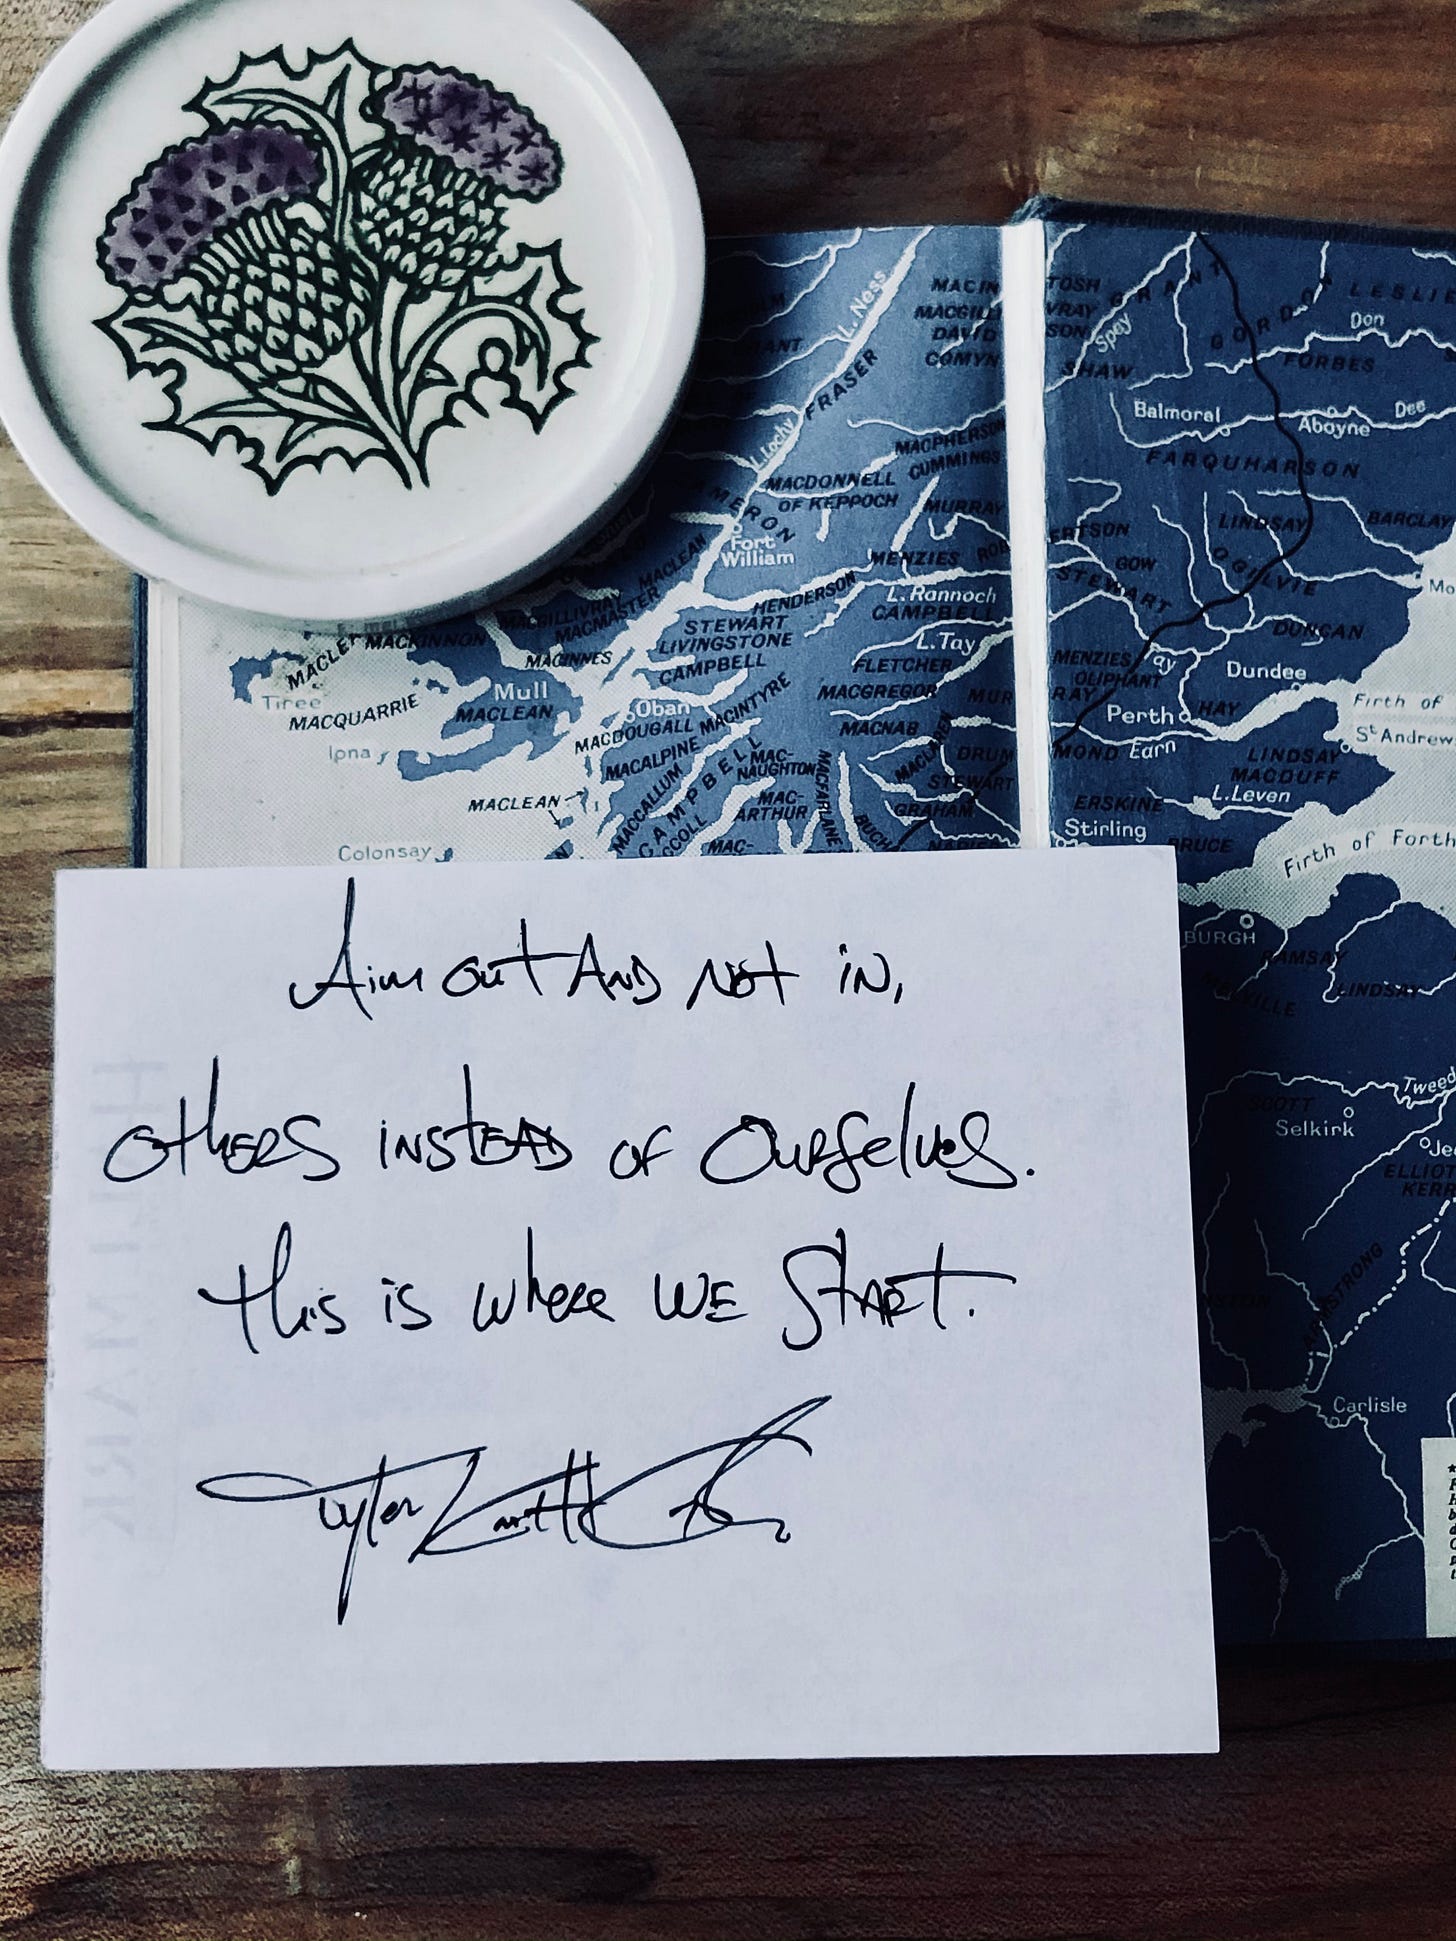 L. Ness
MACIN
TOSH
GRANT
GORDON
LESLI
MACGILLI
VRAY
DAVID
SON
Spey
Don
COMYN
SHAW
FORBES
FRASER
Balmoral
Aboyne
Dee
L.Lochy
MACPHERSON
CUMMINGS
FARQUHARSON
MACDONNELL
OF KEPPOCH
CAMERON
MURRAY
LINDSAY
BARCLAY
Fort
William
MACLEAN
MENZIES
ROB
ERTSON
GOW
OGILVIE
STEWART
HENDERSON
L. Rannoch
CAMPBELL
MACGILLIVRAY
MACMASTER
STEWART
LIVINGSTONE
CAMPBELL
L.Tay
DUNCAN
MACKINNON
MACINNES
FLETCHER
MENZIES
Tay
OLIPHANT
Dundee
Tiree
MACQUARRIE
Mull
MACLEAN
Oban
MACDOUGALL
MACINTYRE
MACGREGOR
MUR
RAY
Perth
HAY
Firth of
Iona
MACALPINE
MACNAB
MACLAREN
DRUM
MOND
Earn
LINDSAY
MACDUFF
St Andrews
MACCALLUM
CAMPBELL
MAC-
NAUGHTON
MACFARLANE
STEWART
L.Leven
MACLEAN
MAC-
ARTHUR
BUCH
GRAHAM
ERSKINE
Stirling
BRUCE
Firth of Forth
Colonsay
MAC-
BURGH
RAMSAY
MELVILLE
LINDSAY
Aim out and not in,
others instead of ourselves.
This is where we start.
Tyler
Tweed
SCOTT
Selkirk
Je
ELLIOT
KERR
ARMSTRONG
Carlisle